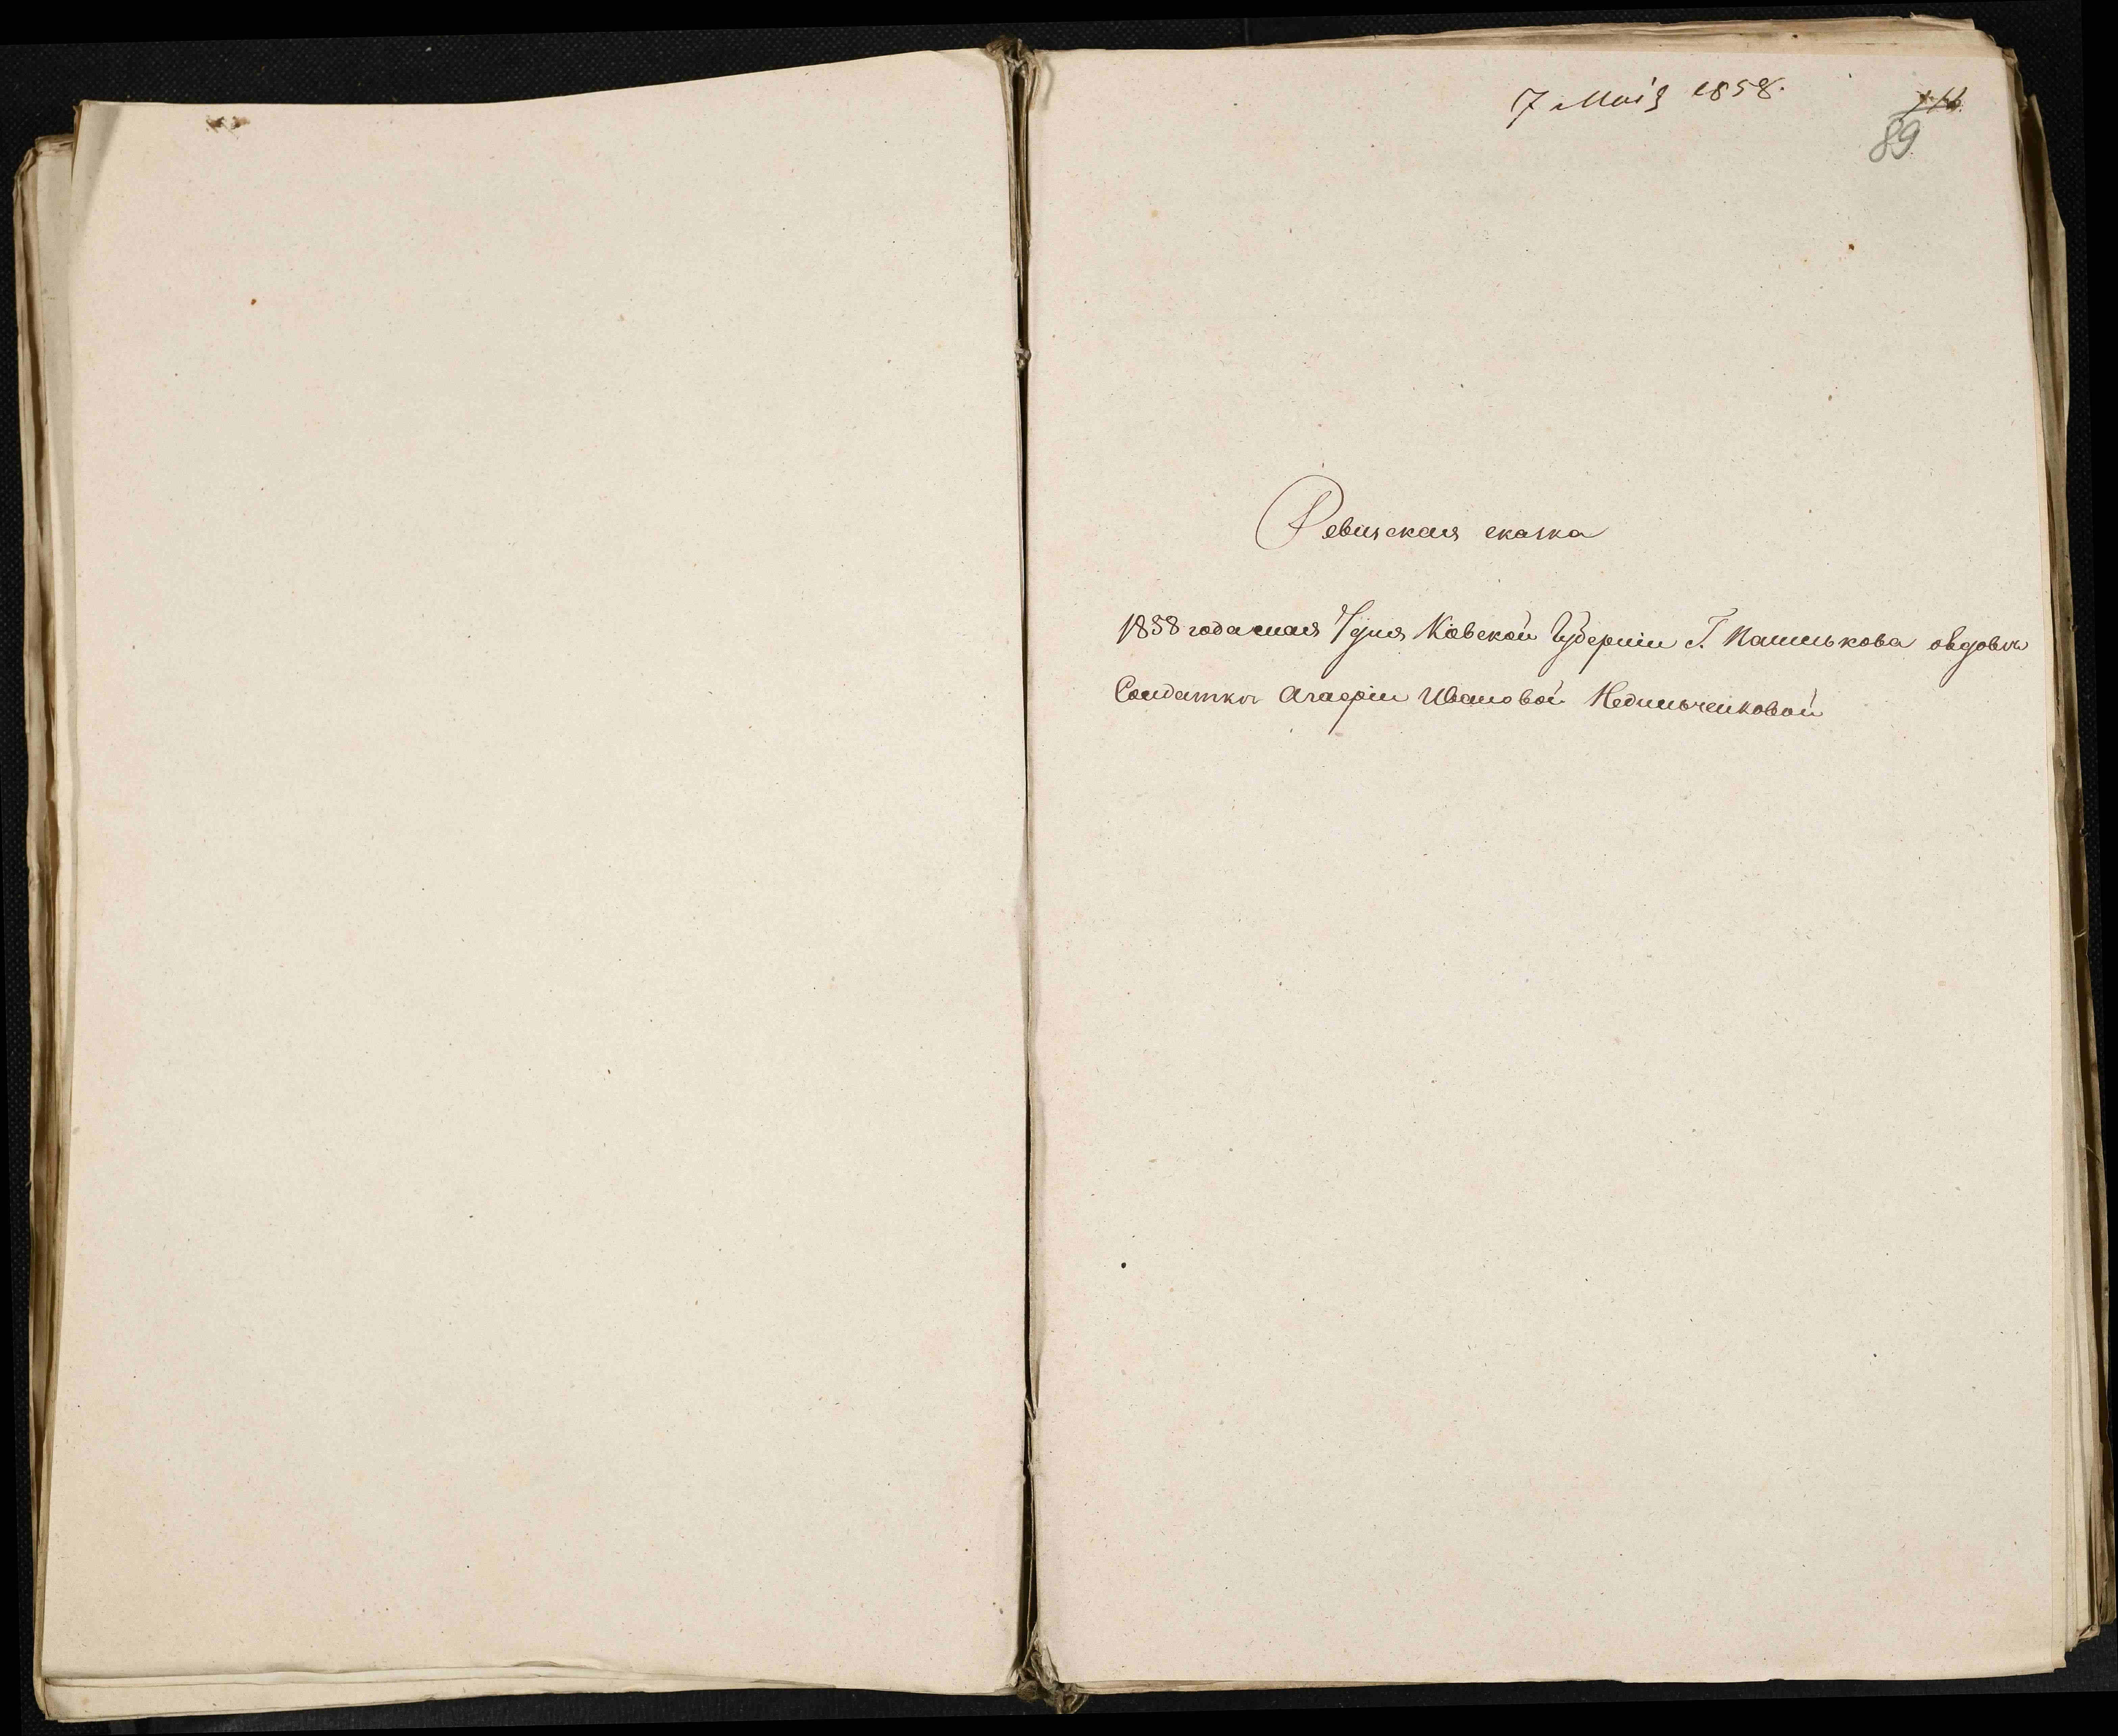 7 Маія 1858.
89
Ревиская сказка
1858 года мая 7 дня Кіевской Губерніи Г. Пашнькова овдовы
Солдатки Агафіи Ивановой Недильченковой